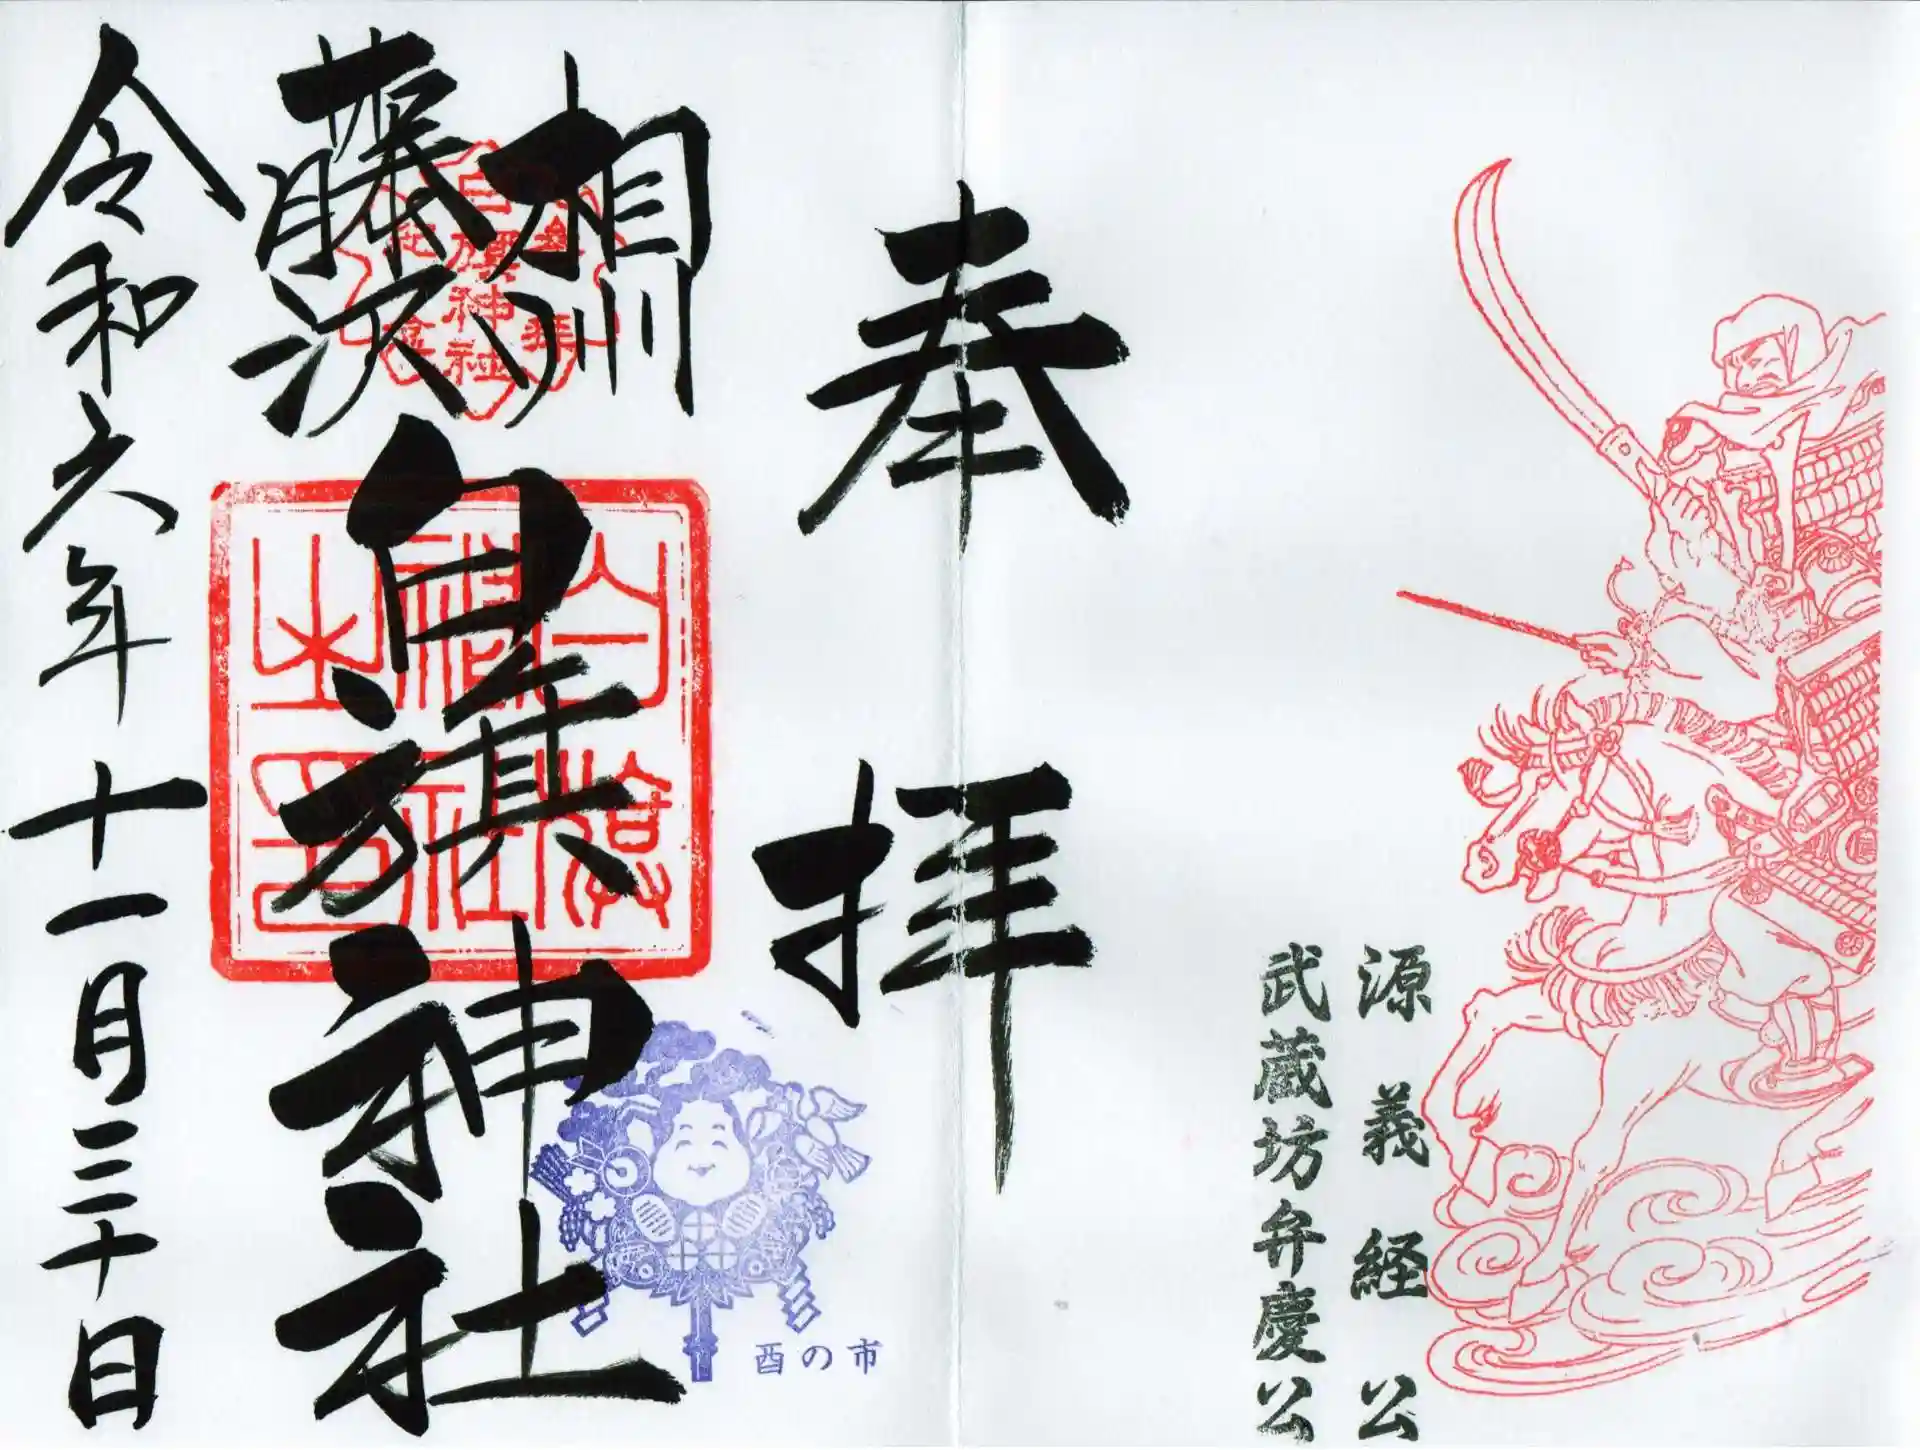 源義経公
武蔵坊弁慶公
奉拝
相州
藤沢
白旗神社
令和六年十一月三十日
白旗神社
白旗
神社
之印
酉の市